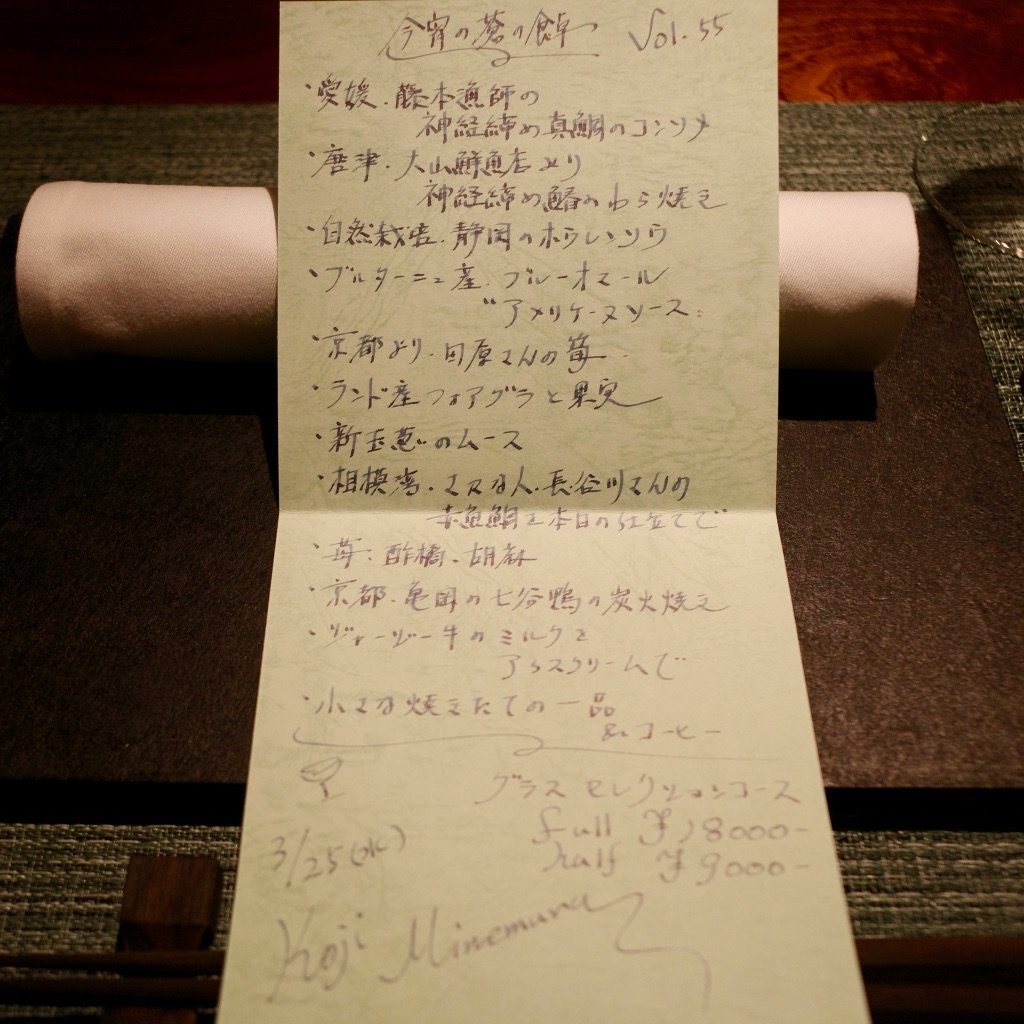 今宵の蒼の食卓 Vol.55
・愛媛.藤本漁師の
神経締め真鯛のコンソメ
・唐津.大山鮮魚店より
神経締め鰆のわら焼き
・自然栽培.静岡のホウレンソウ
・ブルターニュ産.ブルーオマール
"アメリケーヌソース"
・京都より.田原さんの筍
・ランド産フォアグラと果実
・新玉葱のムース
・相模湾.長谷川さんの
赤魚鯛を本日の仕立てで
・苺:酢橘.胡麻
・京都.亀岡の七谷鴨の炭火焼き
・ジャージー牛のミルクを
アイスクリームで
・小さな焼きたての一品
&コーヒー
グラスセレクションコース
full ¥18000-
half ¥9000-
3/25(水)
Koji Minemura